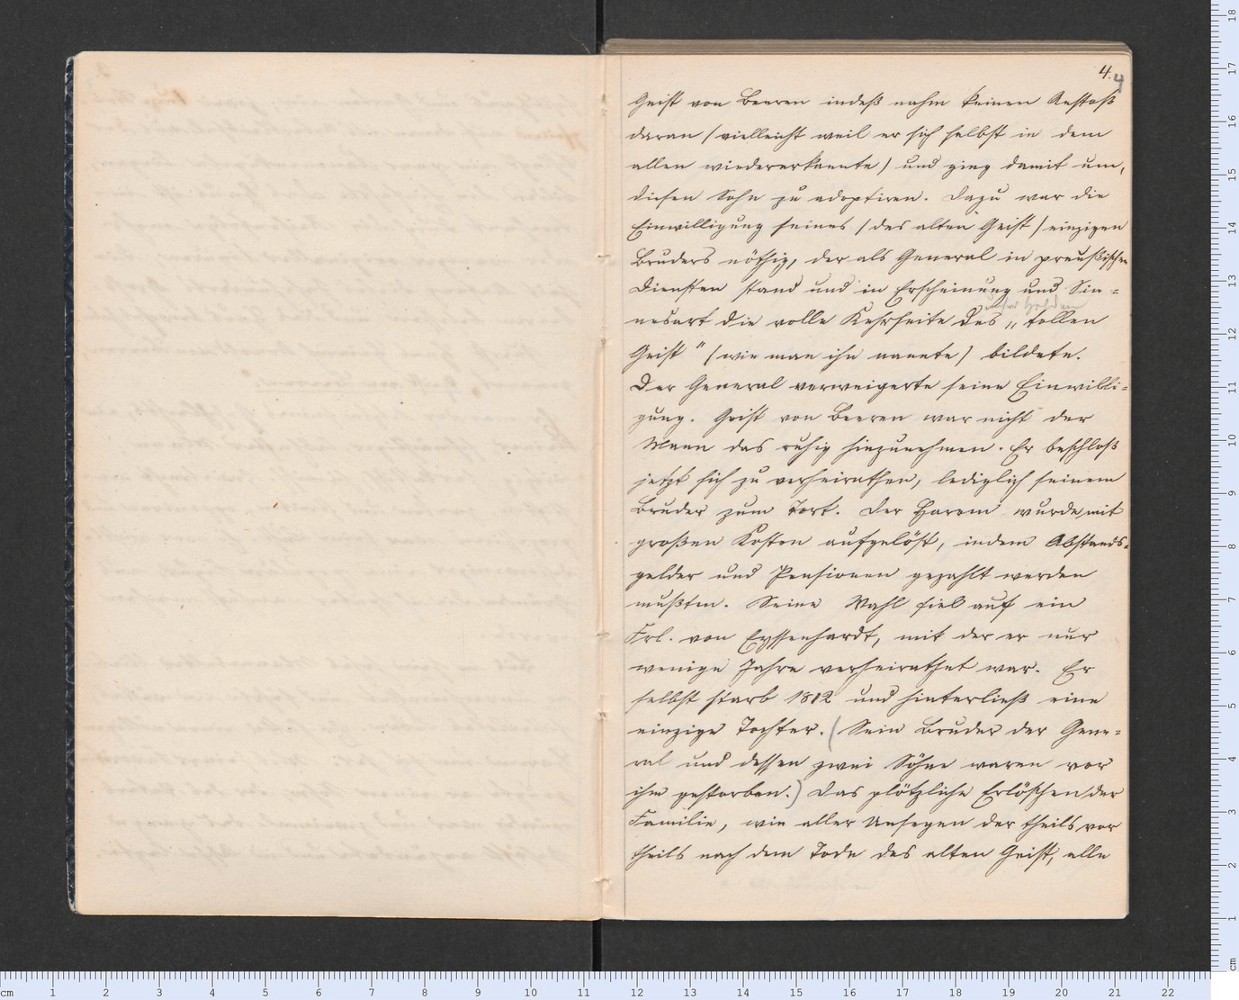 4.
4
Geist von Beeren indeß nahm keinen Anstoß
daran (vielleicht weil er sich selbst in dem
allen wiedererkannte) und ging damit um,
diesen Sohn zu adoptiren. Dazu war die
Einwilligung seines (des alten Geist) einzigen
Bruders nöthig, der als General in preußischen
Diensten stand und in Erscheinung und Sin-
nesart die volle Kehrseite des „tollen
Geist" (wie man ihn nannte) bildete.
Der General verweigerte seine Einwilli-
gung. Geist von Beeren war nicht der
Mann das ruhig hinzunehmen. Er beschloß
jetzt sich zu verheirathen, lediglich seinem
Bruder zum Tort. Der Harem wurde mit
großen Kosten aufgelöst, indem Abstands-
gelder und Pensionen gezahlt werden
mußten. Seine Wahl fiel auf ein
Frl. von Eyssenhardt, mit der er nur
wenige Jahre verheirathet war. Er
selbst starb 1812 und hinterließ eine
einzige Tochter. (Sein Bruder der Gene-
ral und dessen zwei Söhne waren vor
ihm gestorben.) Das plötzliche Erlöschen der
Familie, wie aller Unsegen der theils vor
theils nach dem Tode des alten Geist, alle